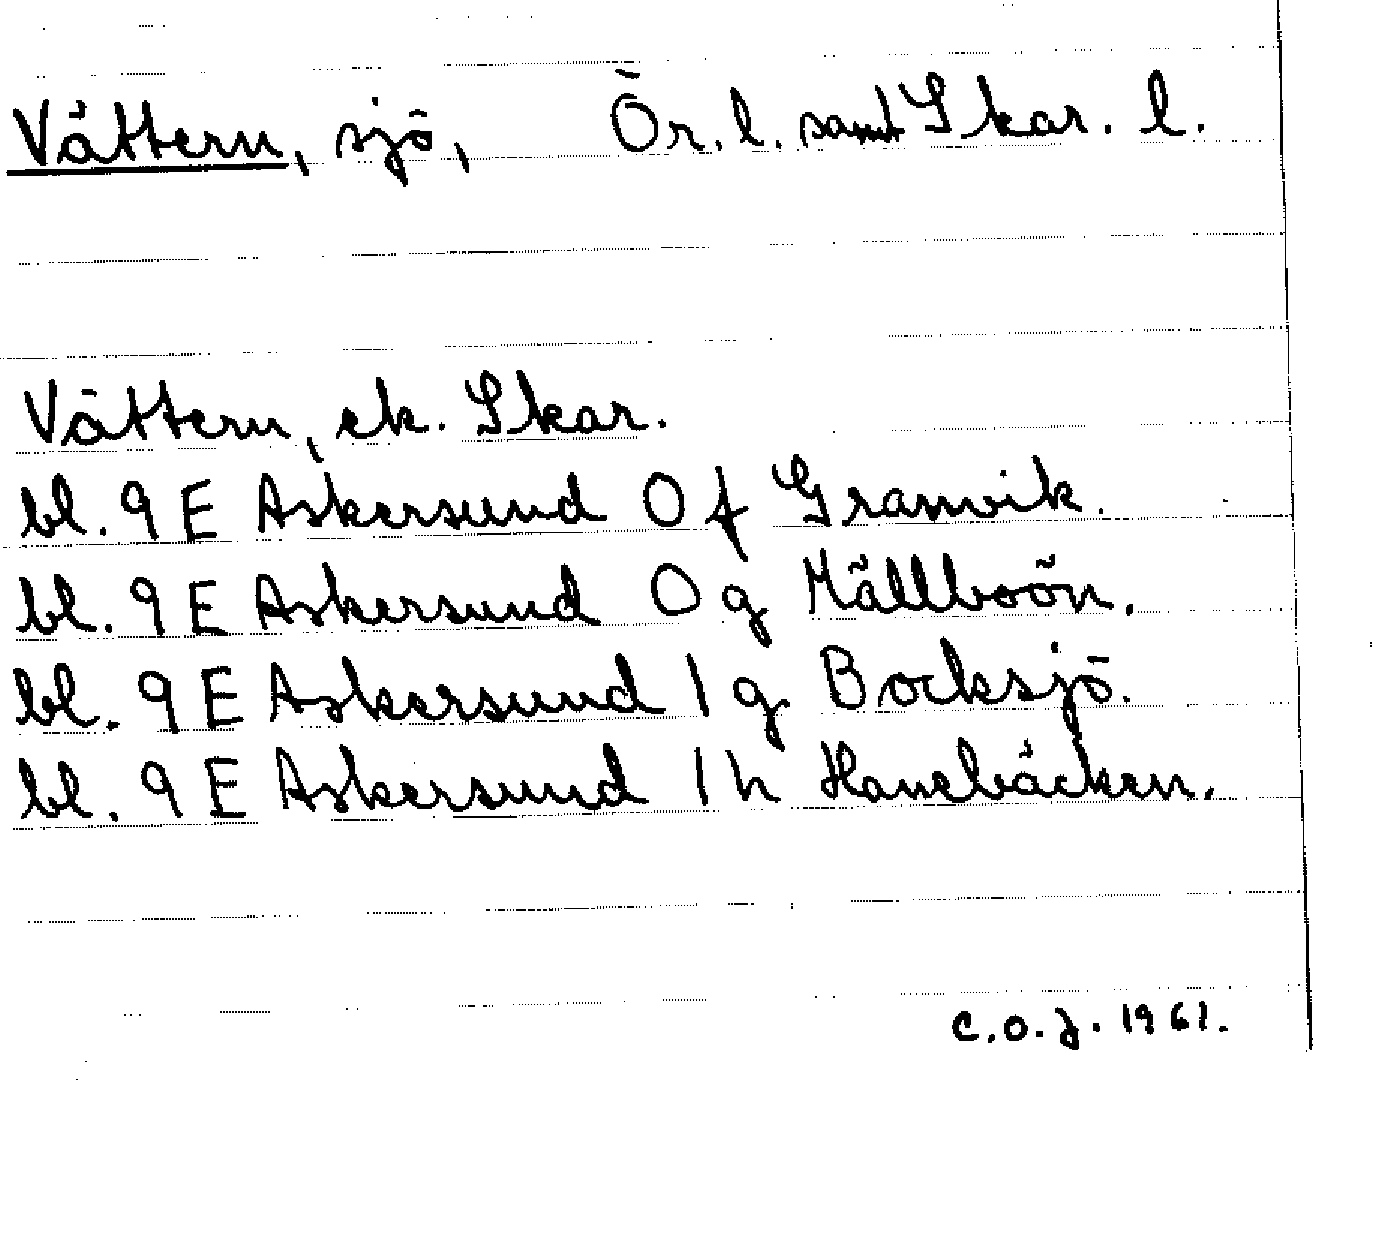 Vättern, sjö, Ör. l. samt Skar. l.
Vättern, ek. Skar.
bl. 9 E Askersund 0 f Granvik.
bl. 9 E Askersund 0 g Källboön.
bl. 9 E Askersund 1 g Bocksjö.
bl. 9 E Askersund 1 h Hanebäcken.
C.O.J. 1961.